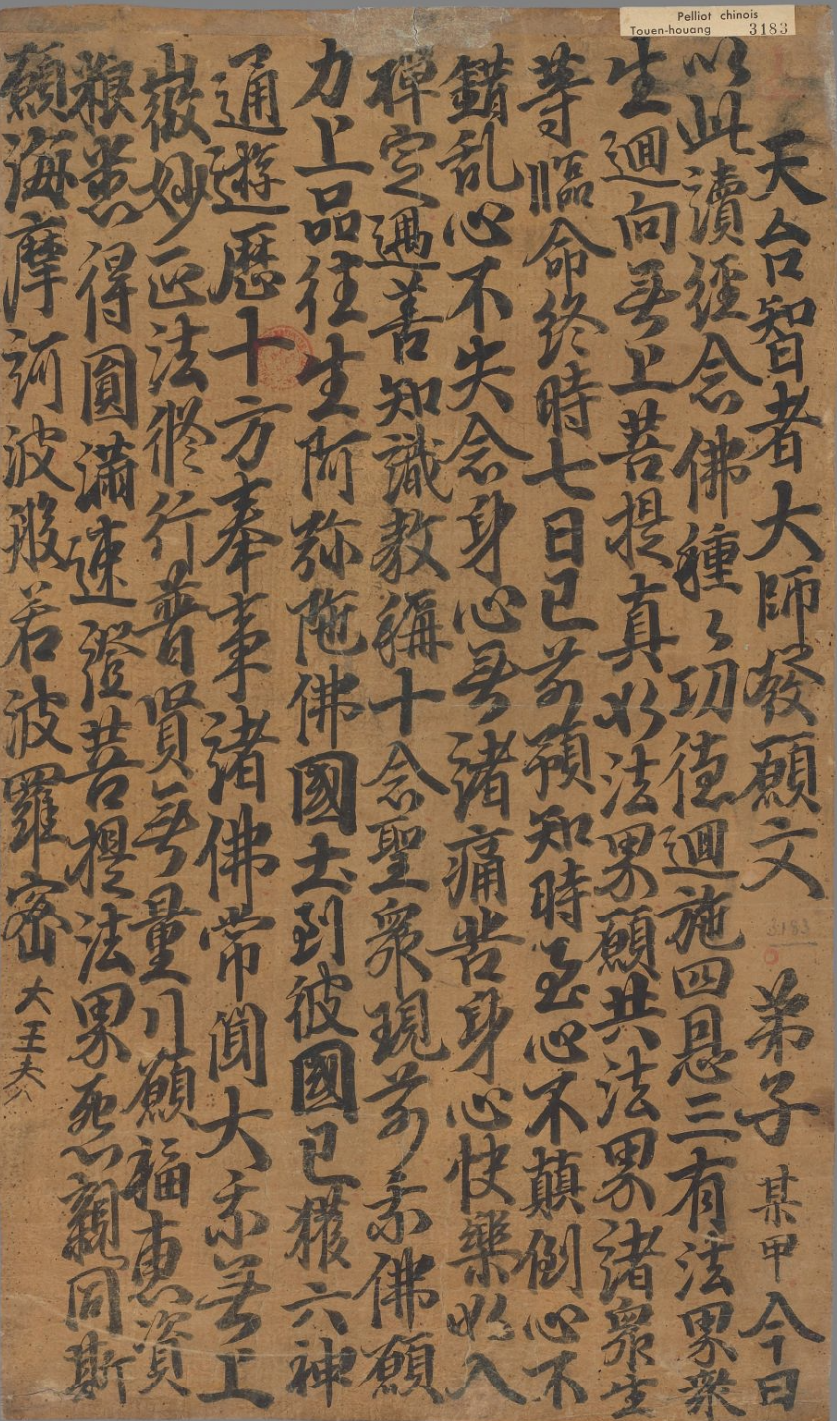 Pelliot chinois
Touen-houang 3183
天台智者大師發願文 弟子某甲今日
以此讀經念佛種〻功德迴施四恩三有法界衆
生迴向无上菩提真如法界願共法界諸衆生
等臨命終時七日已前預知時至心不顛倒心不
錯乱心不失念身心无諸痛苦身心快樂如入
禪定遇善知識教稱十念聖衆現前承佛願
力上品往生阿弥陁佛國土到彼國已獲六神
通遊歷十方奉事諸佛常聞大乘无上
微妙正法修行普賢无量行願福惠資
粮悉得圓滿速證菩提法界怨親同斯
願海摩訶波般若波羅蜜 大王夫
3183